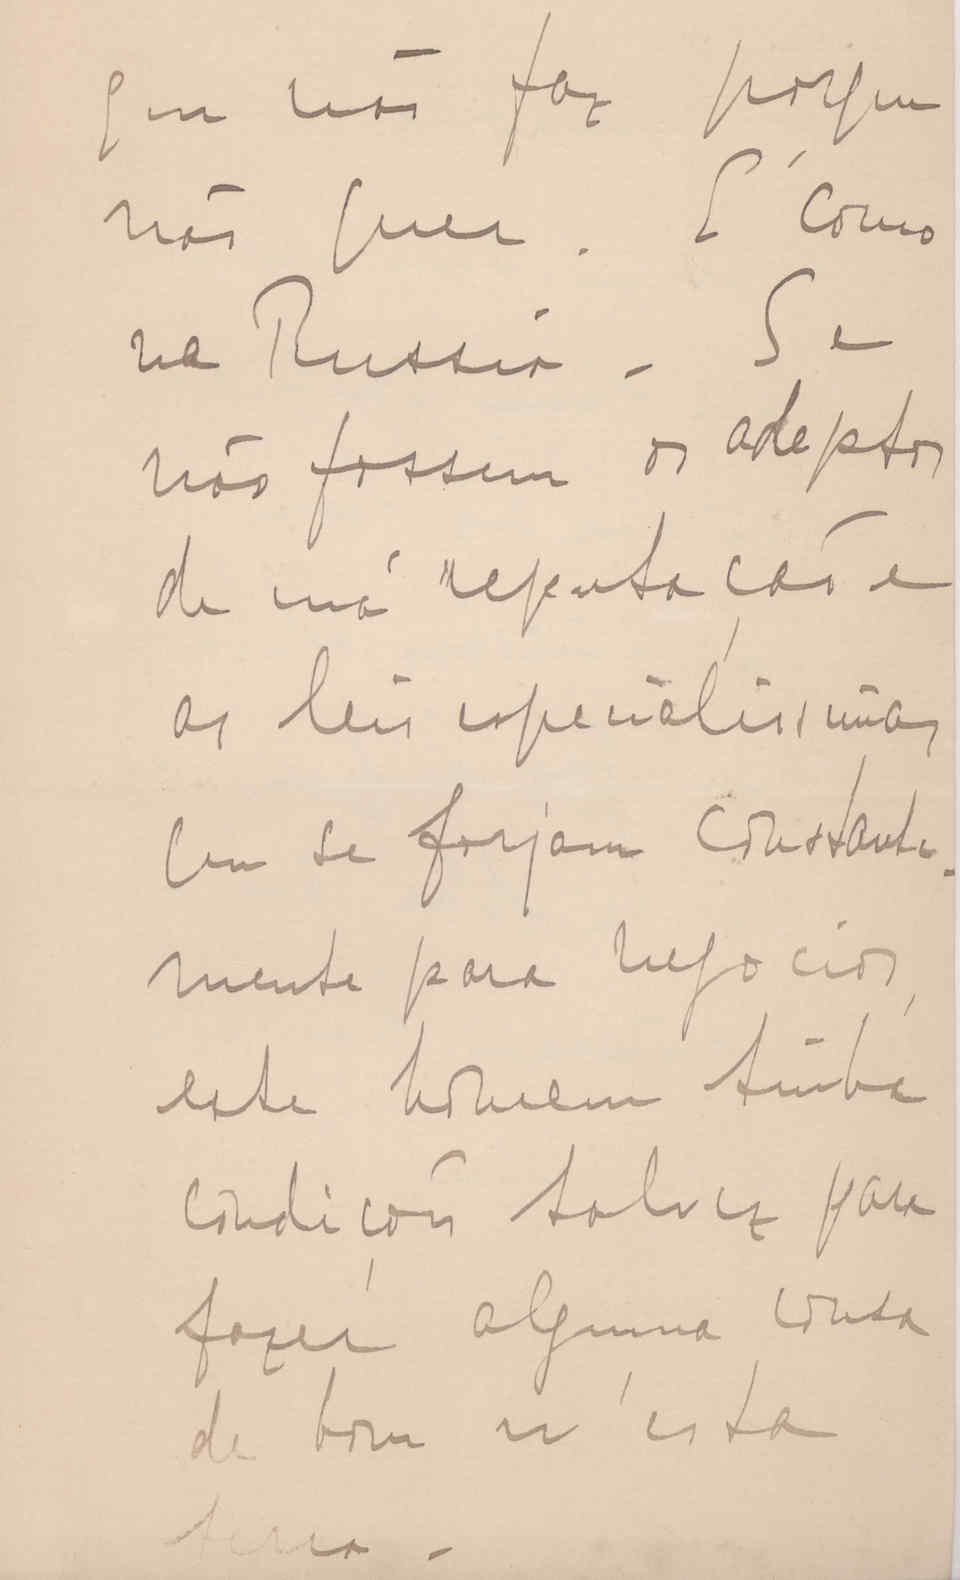 que não faz porque
não quer. É como
na Russia. Se
não fossem os adeptos
de má reputação e
as leis especialissimas
que se forjam constante-
mente para negocios,
este homem tinha
condições talvez para
fazer alguma cousa
de bom n'esta
terra.